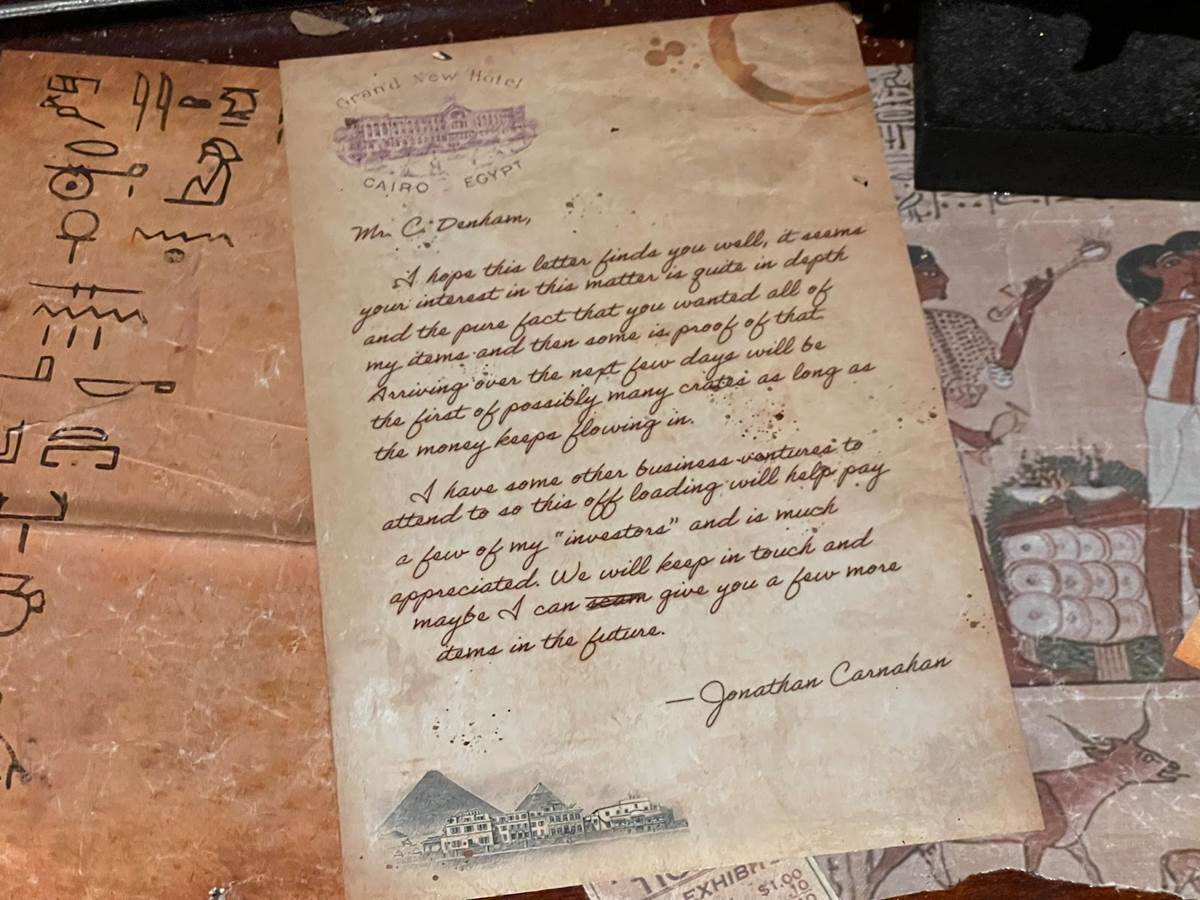 Grand New Hotel
CAIRO EGYPT
Mr. C. Denham,
I hope this letter finds you well, it seems
your interest in this matter is quite in depth
and the pure fact that you wanted all of
my items and then some is proof of that.
Arriving over the next few days will be
the first of possibly many crates as long as
the money keeps flowing in.
I have some other business ventures to
attend to so this off loading will help pay
a few of my "investors" and is much
appreciated. We will keep in touch and
maybe I can scam give you a few more
items in the future.
— Jonathan Carnahan
EXHIB
$1.00
10